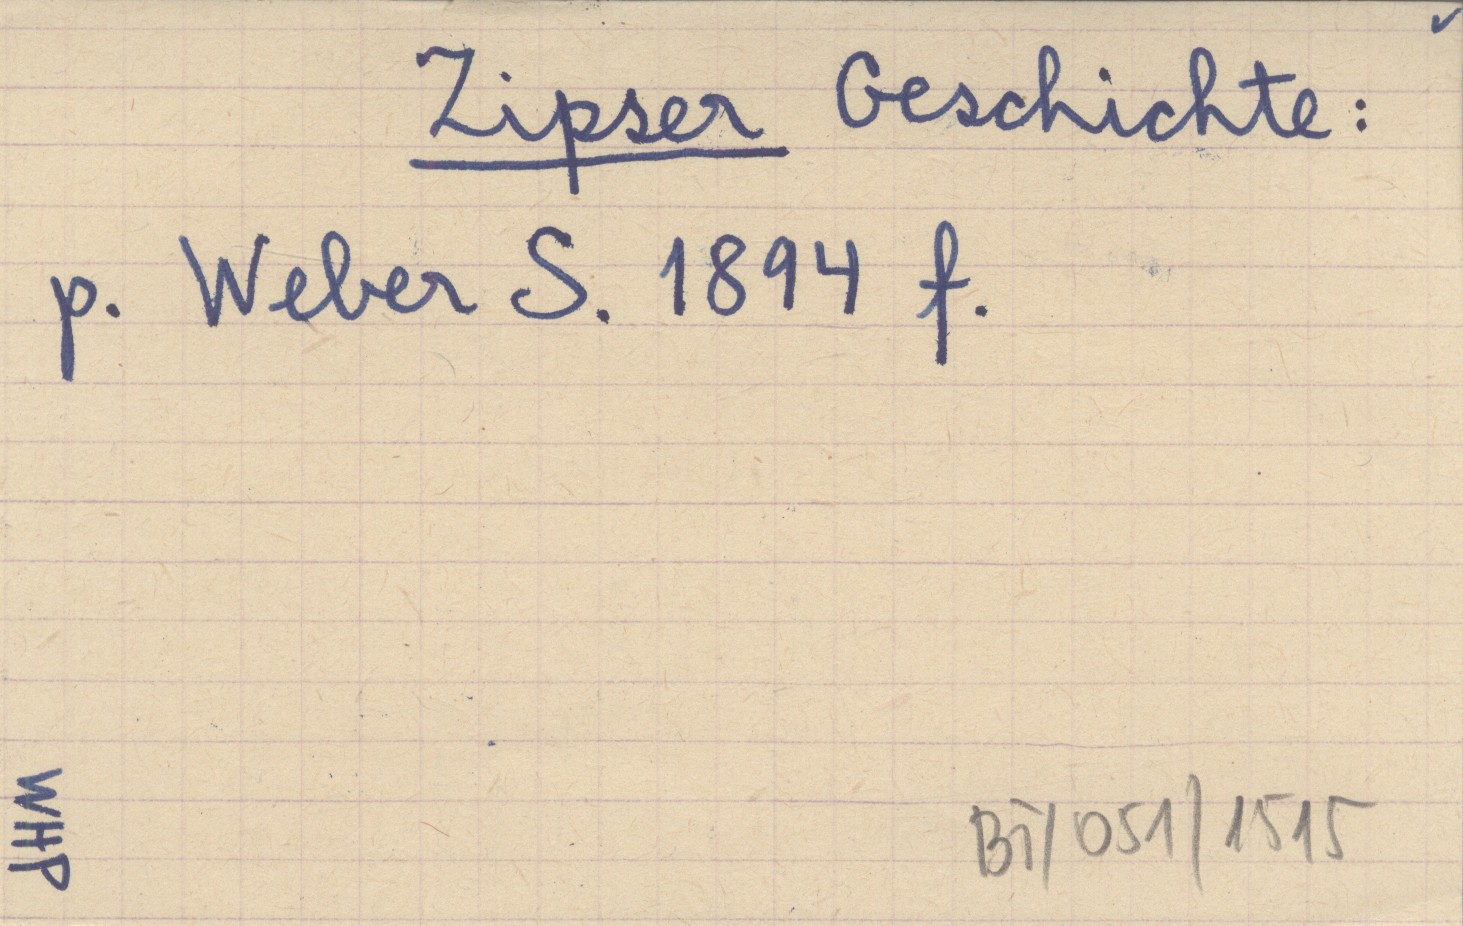 Zipser Geschichte:
p. Weber S. 1894 f.
WHP
BT/051/1515